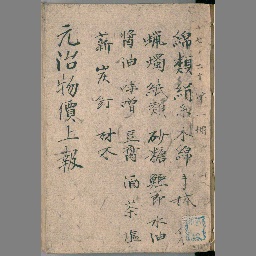 綿類絹糸木綿手拭
蝋燭紙類砂糖鰹節水油
醤油味噌豆腐酒茶塩
薪炭釘材木
元治物價上報